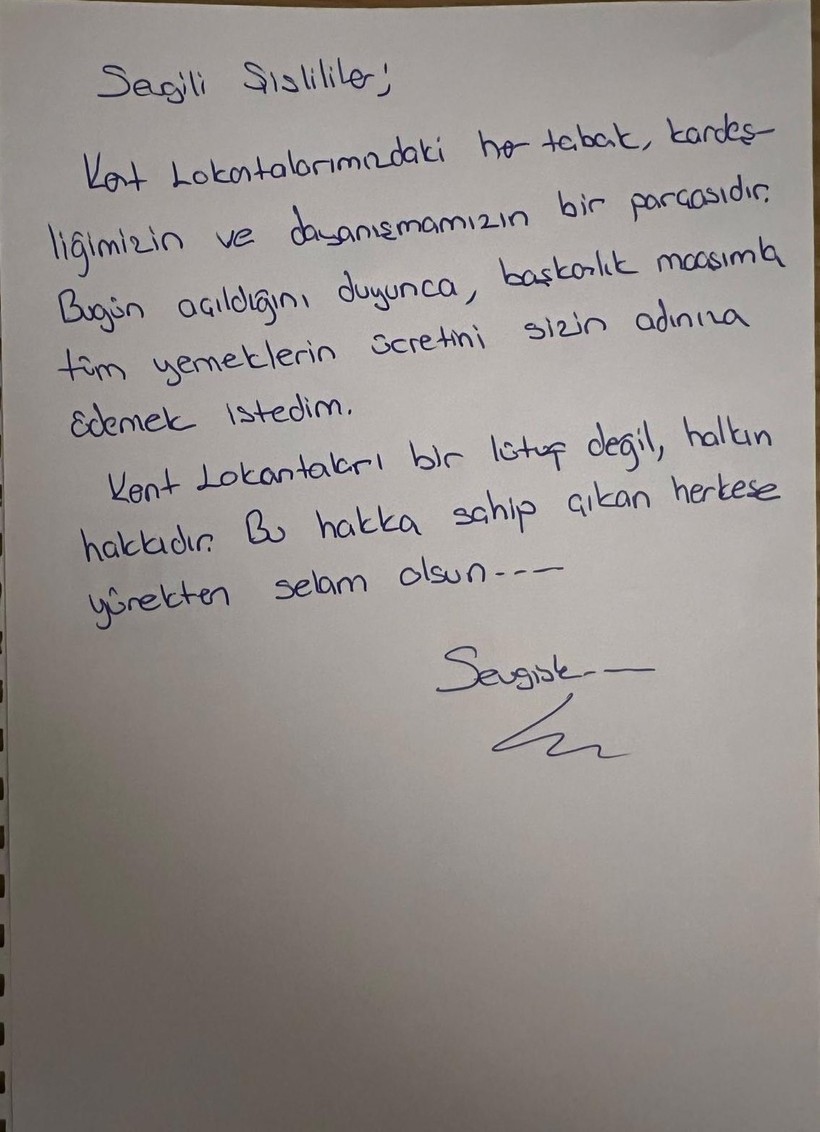 Sevgili Şişlililer;
Kent Lokantalarımızdaki her tabak, kardeş-
liğimizin ve dayanışmamızın bir parçasıdır.
Bugün açıldığını duyunca, başkanlık maaşımla
tüm yemeklerin ücretini sizin adınıza
ödemek istedim.
Kent Lokantaları bir lütuf değil, halkın
hakkıdır. Bu hakka sahip çıkan herkese
yürekten selam olsun----
Sevgiyle----